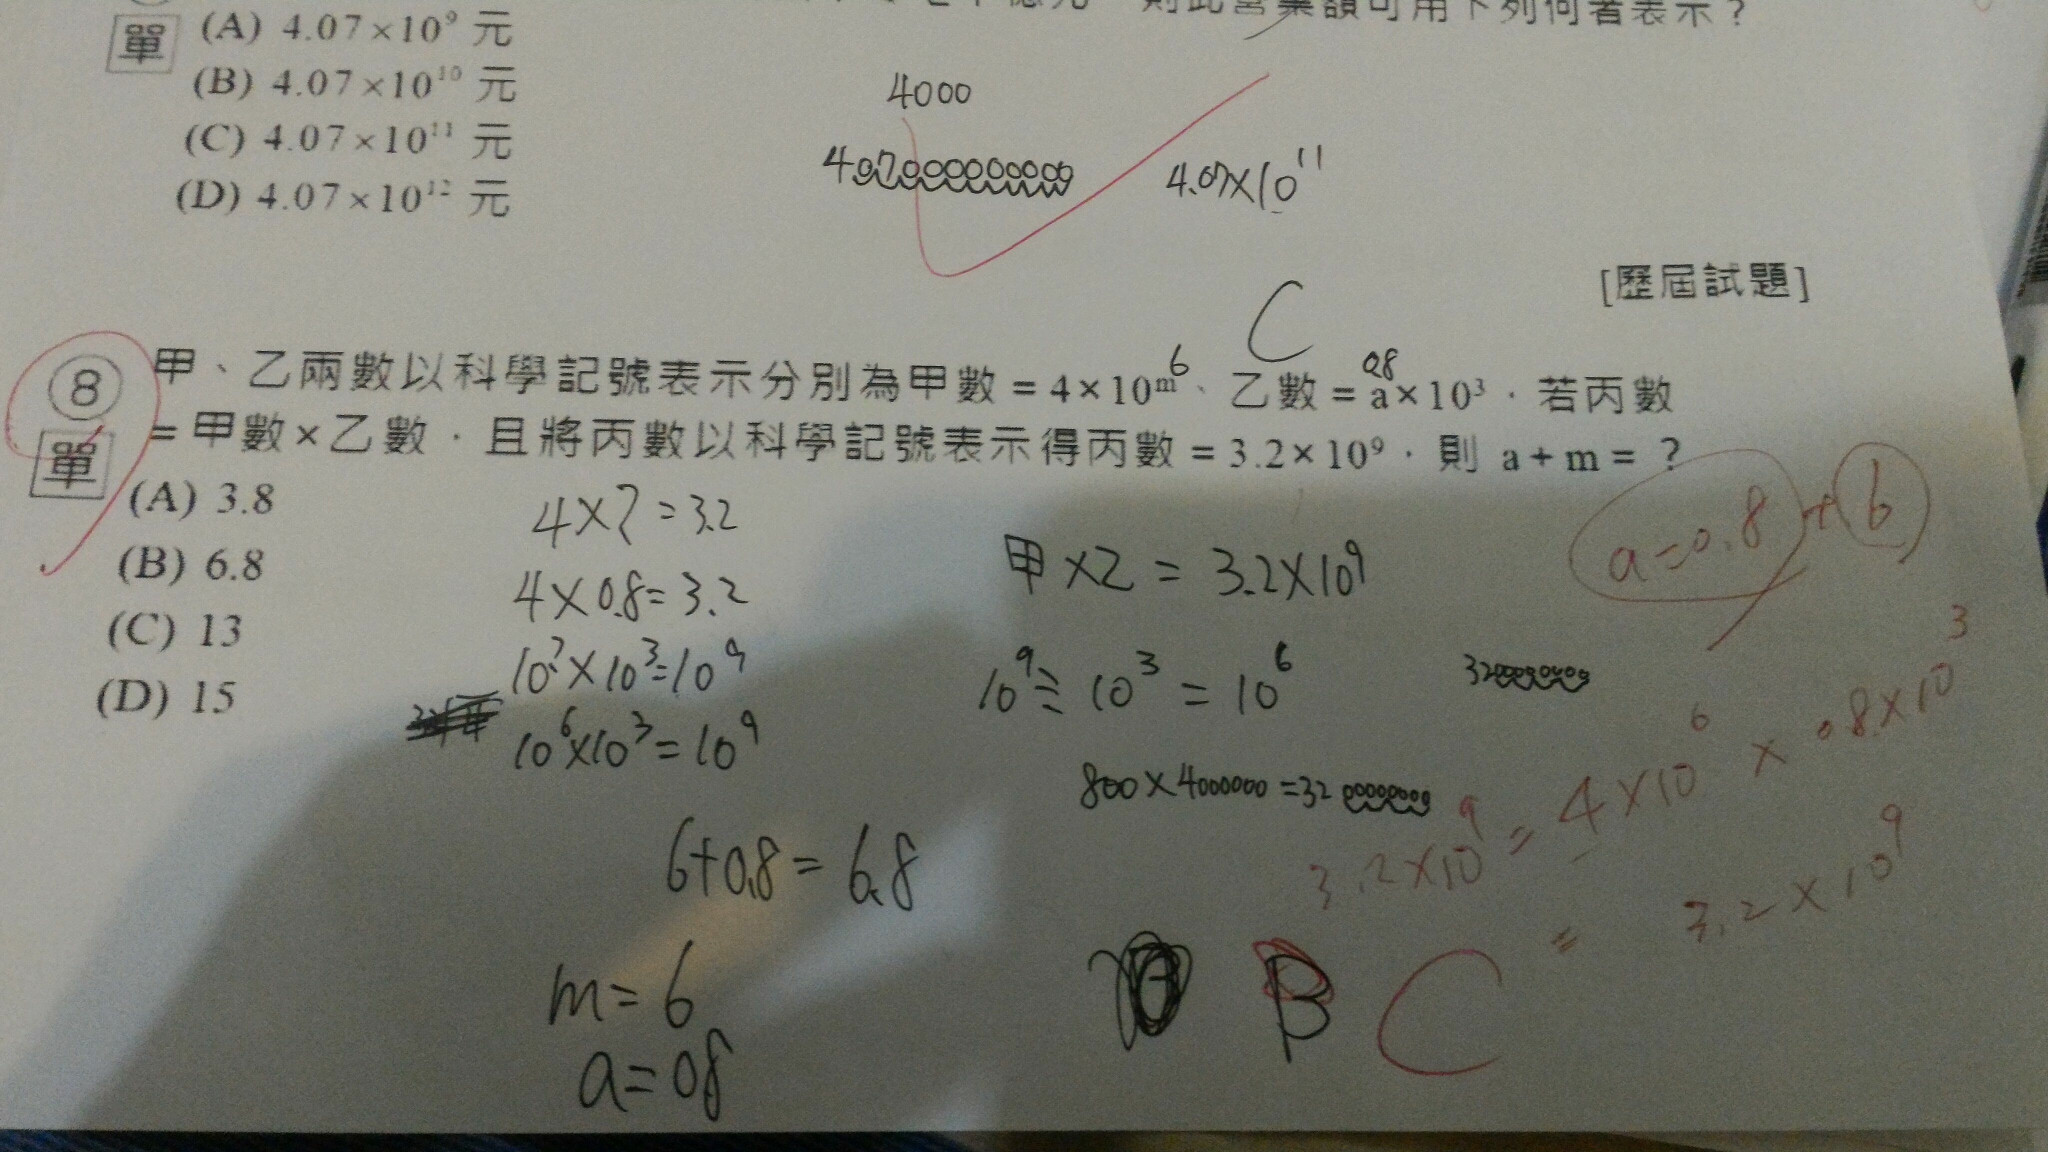 則此營業額可用下列何者表示？
單
(A) 4.07×10⁹ 元
(B) 4.07×10¹⁰ 元
(C) 4.07×10¹¹ 元
(D) 4.07×10¹² 元
4000
407000000000
4.07×10¹¹
C
[歷屆試題]
6
0.8
⑧ 甲、乙兩數以科學記號表示分別為甲數=4×10ᵐ、乙數=a×10³，若丙數
單 =甲數×乙數，且將丙數以科學記號表示得丙數=3.2×10⁹，則 a+m= ？
(A) 3.8
(B) 6.8
(C) 13
(D) 15
4×?=3.2
4×0.8=3.2
10?×10³=10⁹
10⁶×10³=10⁹
6+0.8=6.8
m=6
a=0.8
甲×乙=3.2×10⁹
10⁹÷10³=10⁶
800×4000000=3200000000
3200000000
a=0.8+6
3.2×10⁹=4×10⁶×0.8×10³
=3.2×10⁹
B
C